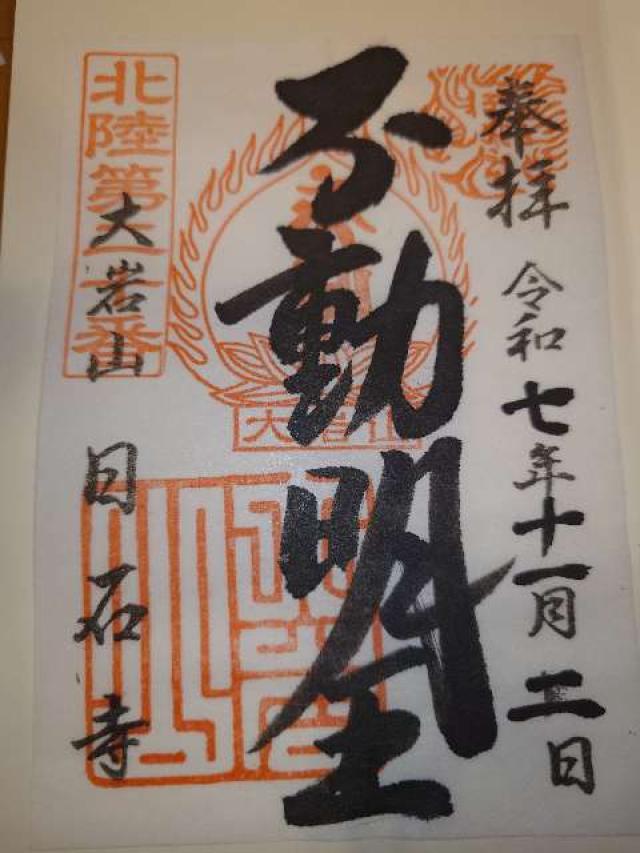 奉拝
令和七年十一月二日
不動明王
大岩山
北陸第十一番
大岩山
日石寺